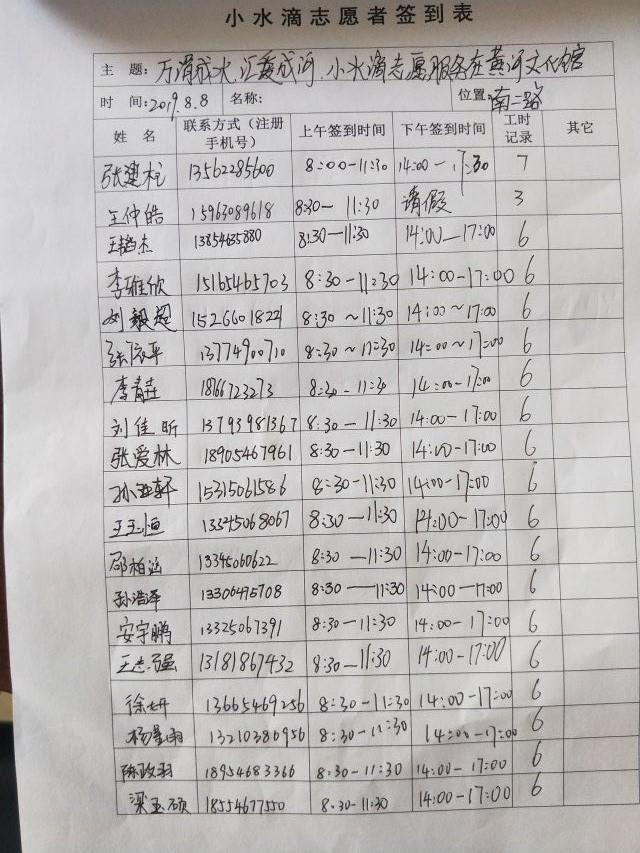 小水滴志愿者签到表
主 题: 万滴成水,汇爱成河,小水滴志愿服务在黄河文化馆
时 间: 2019.8.8 名称: 位置: 南二路
姓 名 联系方式(注册手机号) 上午签到时间 下午签到时间 工时记录 其它
张建柱 13562285600 8:00-11:30 14:00-17:30 7
王仲皓 15963089618 8:30-11:30 请假 3
13854635880 8:30-11:30 14:00-17:00 6
李雅欣 15165465703 8:30-11:30 14:00-17:00 6
刘毅超 8:30~11:30 14:00~17:00 6
张 平 13774900710 8:30~17:30 14:00~17:00 6
李青 18766723273 8:30-11:30 14:00-17:00 6
刘佳昕 13793981367 8:30-11:30 14:00-17:00 6
张爱林 18905467961 8:30-11:30 14:00-17:00 6
孙 轩 15315061586 8:30-11:30 14:00-17:00 6
王玉恒 13345068067 8:30-11:30 14:00-17:00 6
邵柏涵 13345060622 8:30-11:30 14:00-17:00 6
孙浩泽 13306475708 8:30-11:30 14:00-17:00 6
安宇鹏 13325067391 8:30-11:30 14:00-17:00 6
王志强 13181867432 8:30-11:30 14:00-17:00 6
徐妍 13665469256 8:30-11:30 14:00-17:00 6
杨 雨 13210380956 8:30-11:30 14:00-17:00 6
陈政羽 18954683366 8:30-11:30 14:00-17:00 6
梁玉硕 18554677550 8:30-11:30 14:00-17:00 6